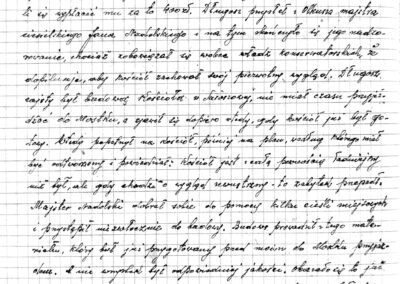 li się wypłacić mu za to 400zł. Długosz przysłał z Olkusza majstra
ciesielskiego Jana Nadolskiego i na tym skończyło się jego nadzo-
rowanie, chociaż zobowiązał się wobec władz konserwatorskich, że
dopilnuje, aby kościół zachował swój pierwotny wygląd. Długosz,
zajęty był budową Kościoła w , nie miał czasu przyje-
ździć do Mostku, a zjawił się dopiero wtedy, gdy kościół już był go-
towy. Kiedy popatrzył na kościół, później na plan, według którego miał
być odtworzony i powiedział: Kościół jest z całą pewnością ładniejszy
niż był, ale gdy chodzi o wygląd zewnętrzny - to zabytek przepadł.
Majster Nadolski dobrał sobie do pomocy kilku cieśli miejscowych
i przystąpił niezwłocznie do budowy. Budowę prowadził z tego mate-
riału, który był już przygotowany przed moim do Mostku przyja-
zdem. A nie wszystek był odpowiedniej jakości, okazało się to już